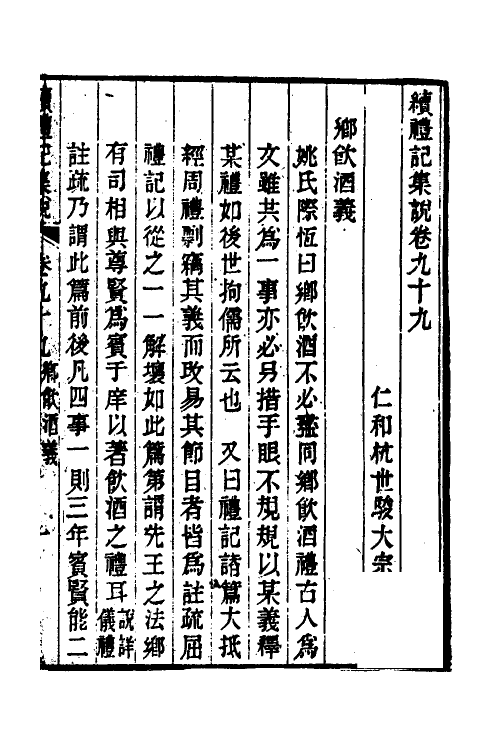 續禮記集說卷九十九
仁和杭世駿大宗
鄉飲酒義
姚氏際恆曰鄉飲酒不必盡同鄉飲酒禮古人為
文雖共為一事亦必另措手眼不規規以某義釋
某禮如後世拘儒所云也　又曰禮記諸篇大抵
經周禮剽竊其義而改易其節目者皆為註疏屈
禮記以從之一一解壞如此篇第謂先王之法鄉
有司相與尊賢為賓于庠以著飲酒之禮耳說詳儀禮
註疏乃謂此篇前後凡四事一則三年賓賢能二
續禮記集說　卷九十九鄉飲酒義　一